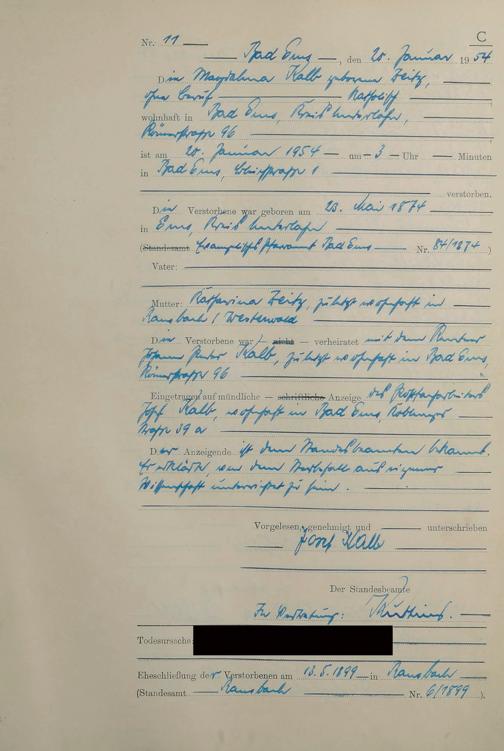 C
Nr. 11
Bad Ems, den 20. Januar 1954
Die Magdalena Kalb geborene Zeitz,
ohne Beruf Katholisch
wohnhaft in Bad Ems, Kreis Unterlahn,
Römerstraße 96
ist am 20. Januar 1954 um 3 Uhr Minuten
in Bad Ems, 1
verstorben.
Die Verstorbene war geboren am 23. Mai 1874
in Ems, Kreis Unterlahn
(Standesamt Evangelisches Pfarramt Bad Ems Nr. 84/1874)
Vater:
Mutter: Katharina Zeitz, zuletzt wohnhaft in
Ransbach / Westerwald
Die Verstorbene war – nicht – verheiratet mit dem Rentner
Johann Peter Kalb, zuletzt wohnhaft in Bad Ems,
Römerstraße 96
Eingetragen auf mündliche – schriftliche – Anzeige des
Josef Kalb, wohnhaft in Bad Ems, Koblenzer-
straße 39a
Der Anzeigende ist dem Standesbeamten bekannt.
Er erklärte, von dem Sterbefall aus eigener
Wissenschaft unterrichtet zu sein.
Vorgelesen, genehmigt und unterschrieben
Josef Kalb
Der Standesbeamte
In Vertretung:
Todesursache:
Eheschließung der Verstorbenen am 13.5.1899 in Ransbach
(Standesamt Ransbach Nr. 6/1899).